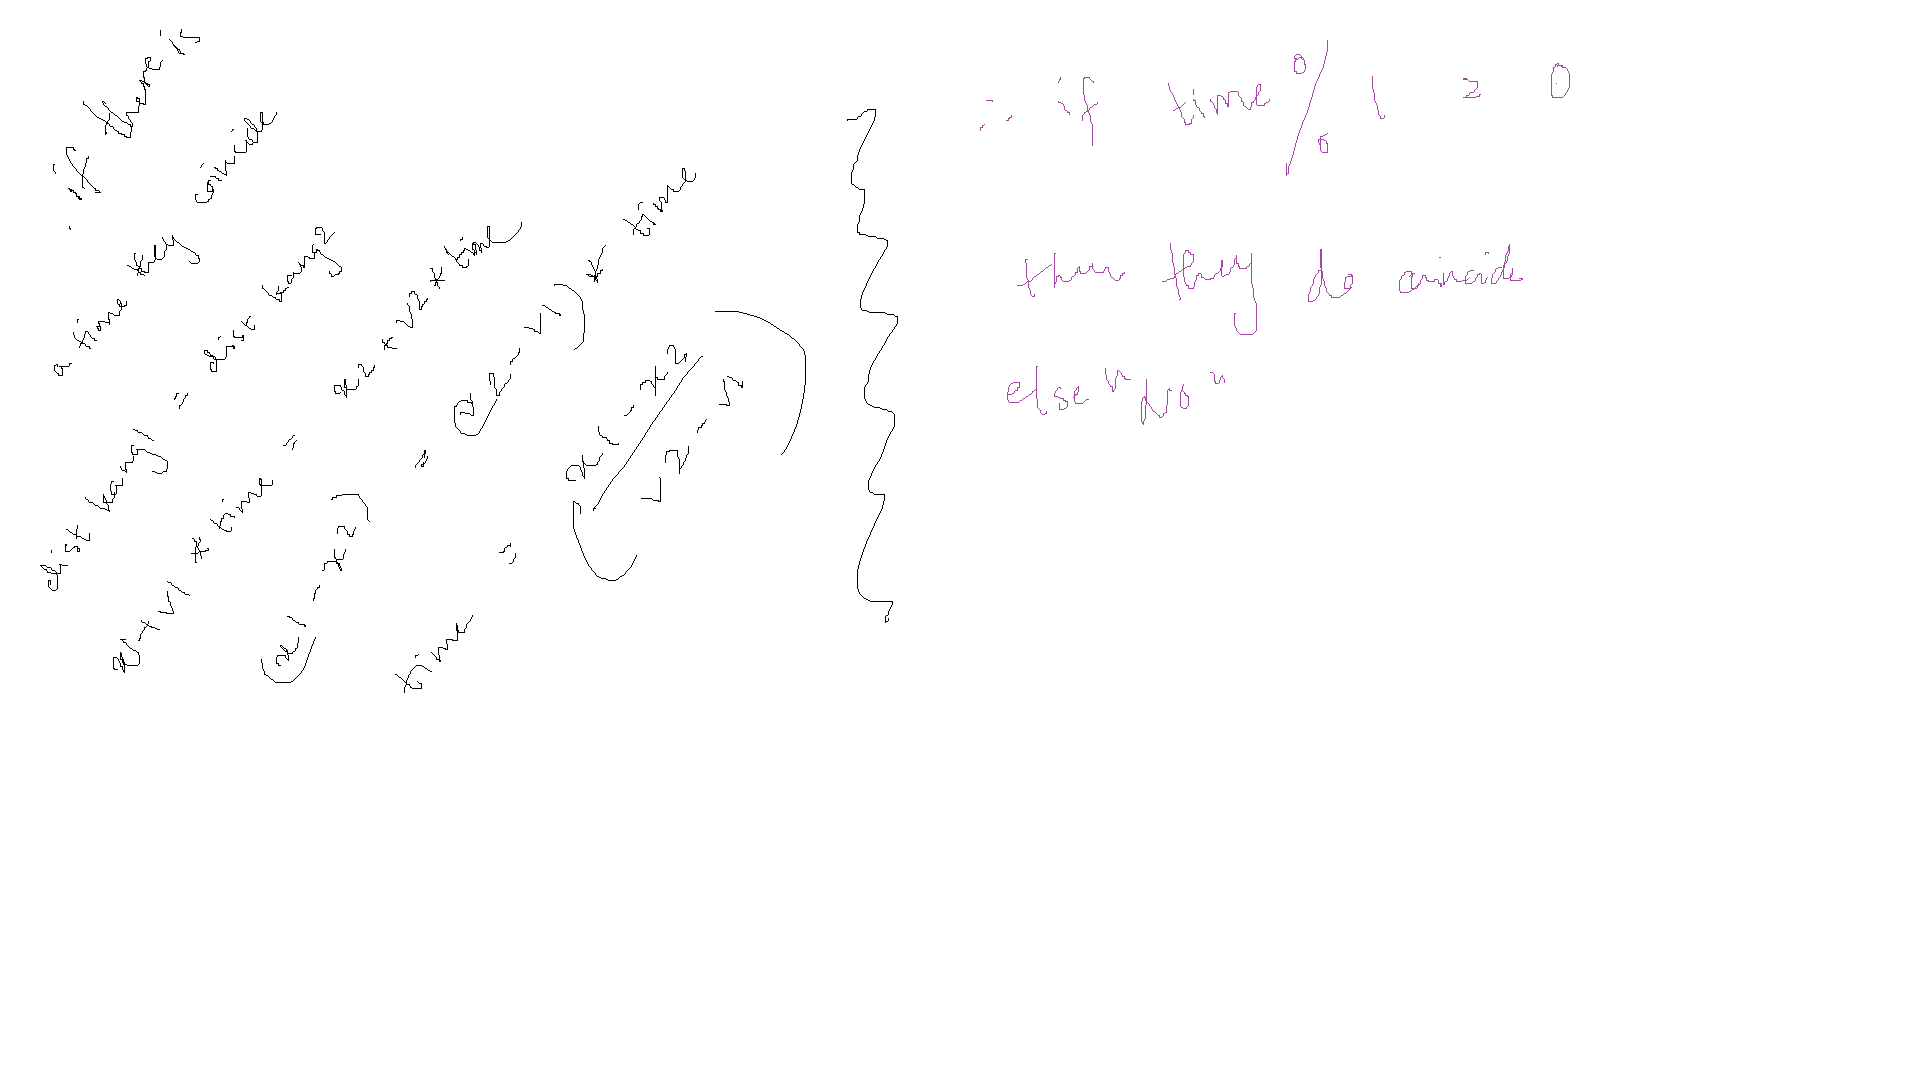 ∴ if there is
a time they coincide
dist kang1 = dist kang2
x1 + v1 * time = x2 + v2 * time
(x1 - x2) = (v2 - v1) * time
time = (x1 - x2 / v2 - v1)
∴ if time % 1 = 0
then they do coincide
else "No"